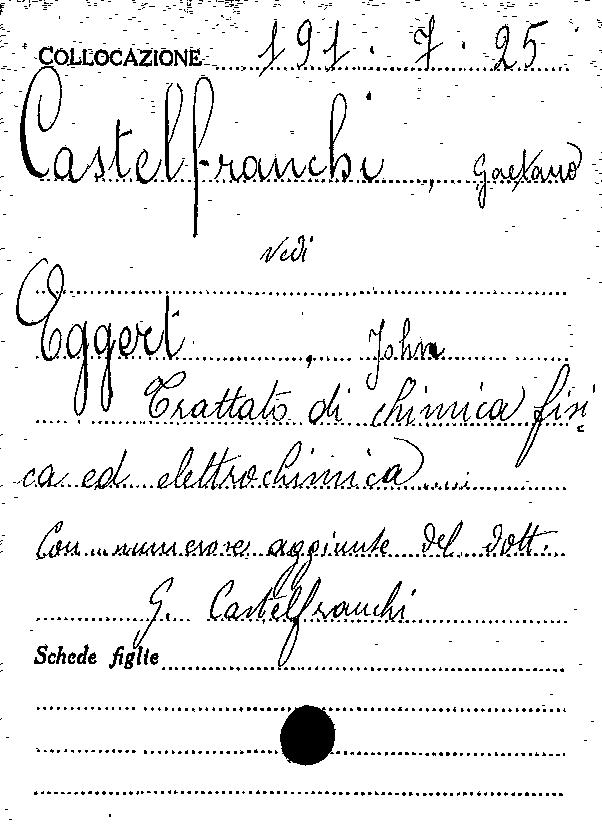 COLLOCAZIONE 191. 7. 25
Castelfranchi, Gaetano
Vedi
Eggert, John
Trattato di chimica fisi
ca ed elettrochimica
Con numerose aggiunte del dott.
G. Castelfranchi
Schede figlie